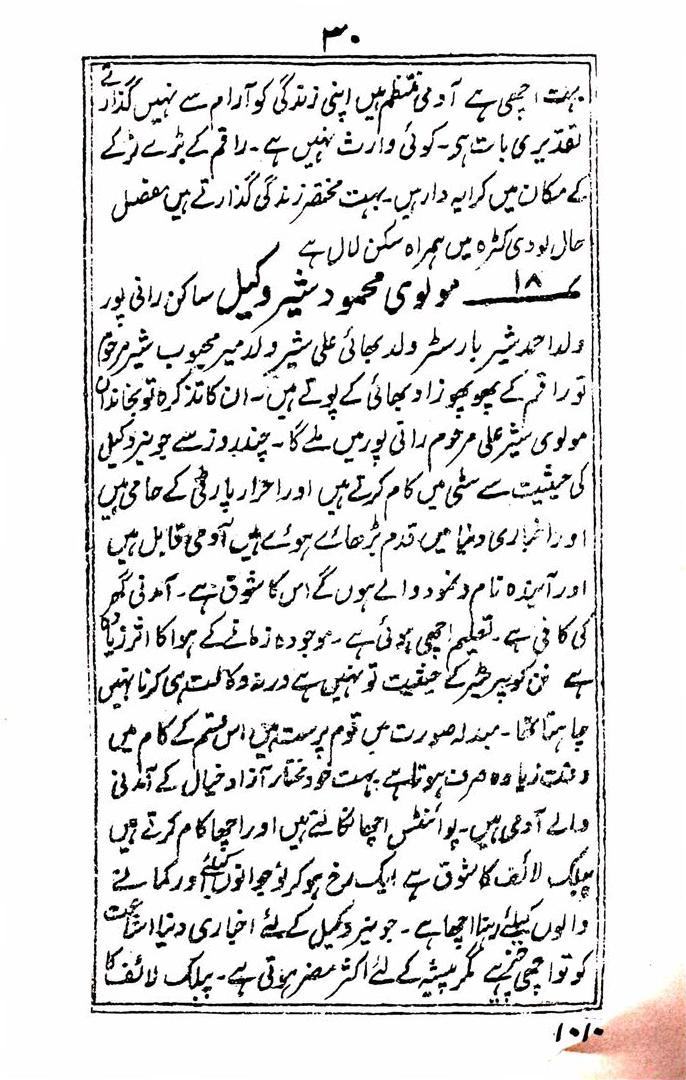 ۳۰
بہت اچھی ہے آدمی منتظم ہیں اپنی زندگی کو آرام سے نہیں گذارتے
تقدیری بات ہے۔ کوئی وارث نہیں ہے۔ راقم کے بڑے لڑکے
کے مکان میں کرایہ دار ہیں۔ بہت مختصر زندگی گذارتے ہیں مفصل
حال لودی کٹرہ میں ہمراہ سکن لال ہے
۱۸ مولوی محمود شیر وکیل ساکن رانی پور
ولد احمد شیر بارسٹر ولد بھائی علی شیر ولد میر محبوب شیر مرحوم
تو راقم کے پھوپھوزاد بھائی کے پوتے ہیں۔ ان کا تذکرہ تو بخاندان
مولوی شیر علی مرحوم رانی پور میں ملے گا۔ چند روز سے جونیر وکیل
کی حیثیت سے سٹی میں کام کرتے ہیں اور احرار پارٹی کے حامی ہیں
اور اخباری دنیا میں قدم بڑھائے ہوئے ہیں آدمی قابل ہیں
اور آیندہ نام و نمود والے ہوں گے اس کا شوق ہے۔ آمدنی گھر
کی کافی ہے۔ تعلیم اچھی ہوئی ہے۔ موجودہ زمانے کے ہوا کا اثر زیادہ
ہے فن کو پیر کے حقیت تو نہیں ہے ورنہ وکالت ہی کرنا نہیں
چاہتا تھا۔ مبدلہ صورت میں قوم پرست ہیں اس قسم کے کام میں
وقت زیادہ صرف ہوتا ہے بہت خود مختار آزاد خیال کے آمدنی
والے آدمی ہیں۔ پوائنٹس اچھا نکالتے ہیں اور اچھا کام کرتے ہیں
پبلک لائف کا شوق ہے ایک رخ ہو کر نوجوانوں کیلئے اور کمانے
والوں کیلئے رہنا اچھا ہے۔ جونیر وکیل کے لئے اخباری دنیا اشاعت
کو تو اچھی چیز ہے مگر پیشہ کے لئے اکثر مضر ہوتی ہے۔ پبلک لائف کا
۱۰۱۰